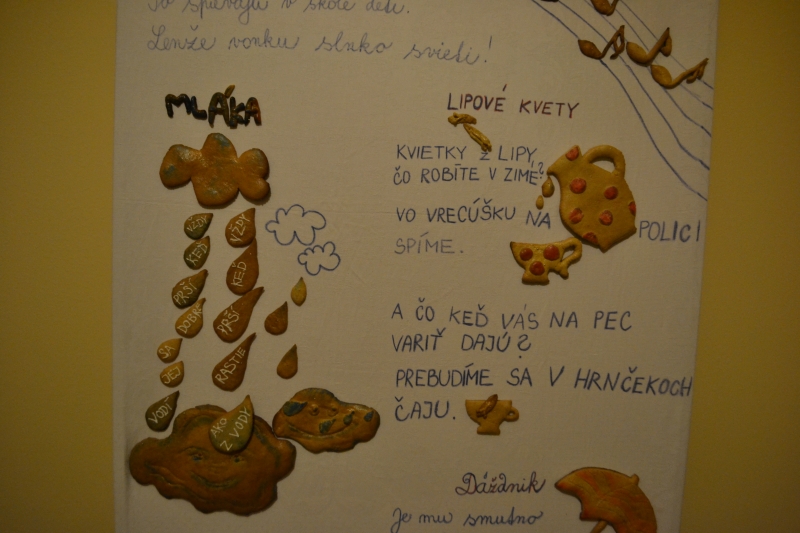 To spievajú v škole deti.
Lenže vonku slnko svieti!
MLÁKA
VŽDY
KEĎ
PRŠÍ
DOBRE
SA
JEJ
VODÍ
VŽDY
KEĎ
PRŠÍ
RASTIE
AKO
Z VODY
LIPOVÉ KVETY
KVIETKY Z LIPY,
ČO ROBÍTE V ZIME?
VO VRECÚŠKU NA POLICI
SPÍME.
A ČO KEĎ VÁS NA PEC
VARIŤ DAJÚ?
PREBUDÍME SA V HRNČEKOCH
ČAJU.
Dáždnik
Je mu smutno